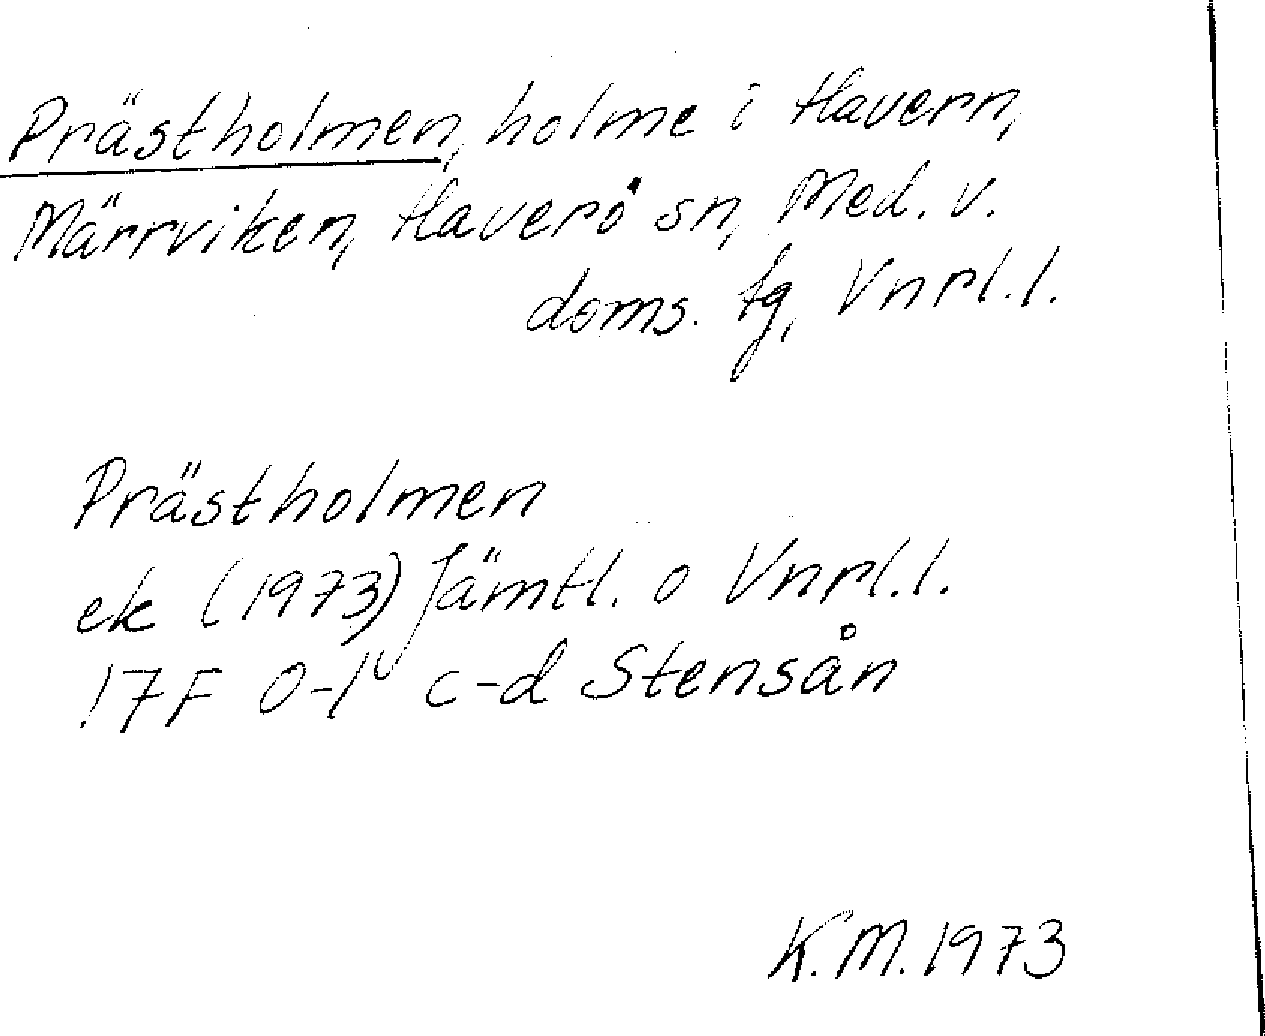 Prästholmen, holme i Havern,
Märrviken, Haverö sn, Med. v.
doms. tg, Vnrl.l.
Prästholmen
ek (1973) Jämtl. o Vnrl.l.
17F 0-1 c-d Stensån
K.M. 1973